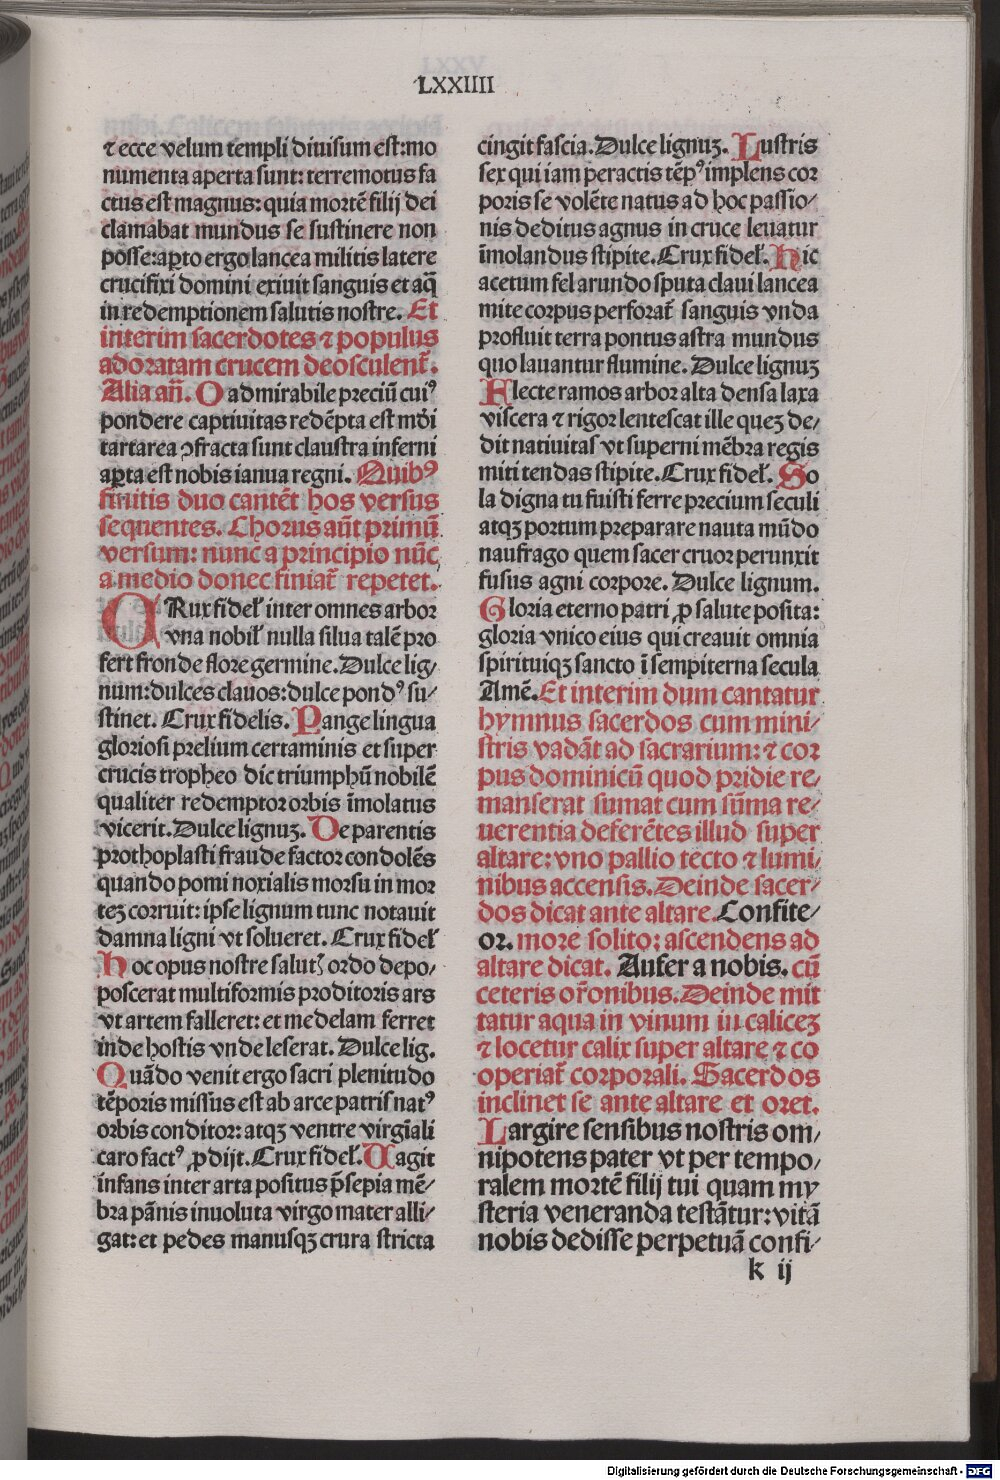 LXXIIII
⁊ ecce velum templi diuisum est:mo
numenta aperta sunt: terremotus fa
ctus est magnus: quia mortē filij dei
clamabat mundus se sustinere non
posse:apto ergo lancea militis latere
crucifixi domini exiuit sanguis et aq̄
in redemptionem salutis nostre. Et
interim sacerdotes ⁊ populus
adoratam crucem deosculent᷑.
Alia añ. O admirabile preciū cuiꝰ
pondere captiuitas redēpta est mūdi
tartarea ↄfracta sunt claustra inferni
aꝑta est nobis ianua regni. Quibꝰ
finitis duo cantēt hos versus
sequentes. Chorus aūt primū
versum: nunc a principio nūc
a medio donec finiat᷑ repetet.
CRux fidel' inter omnes arbor
vna nobil' nulla silua talē pro
fert fronde flore germine. Dulce lig/
num:dulces clauos:dulce pondꝰ su/
stinet. Crux fidelis. Pange lingua
gloriosi prelium certaminis et super
crucis tropheo dic triumphū nobilē
qualiter redemptor orbis īmolatus
vicerit. Dulce lignuꝫ. De parentis
prothoplasti fraude factor condolēs
quando pomi noxialis morsu in mor
teꝫ corruit: ipse lignum tunc notauit
damna ligni vt solueret. Crux fidel'
Hoc opus nostre salutꝭ ordo depo/
poscerat multiformis proditoris ars
vt artem falleret: et medelam ferret
inde hostis vnde leserat. Dulce lig.
Quādo venit ergo sacri plenitudo
tēporis missus est ab arce patris natꝰ
orbis conditor: atqꝫ ventre virgīali
caro factꝰ ꝓdijt. Crux fidel'. Uagit
infans inter arta positus p̄sepia mē/
bra pānis inuoluta virgo mater alli/
gat: et pedes manusqꝫ crura stricta
cingit fascia. Dulce lignuꝫ. Lustris
sex qui iam peractis tēpꝰ implens cor
poris se volēte natus ad hoc passio/
nis deditus agnus in cruce leuatur
īmolandus stipite. Crux fidel'. Hic
acetum fel arundo sputa claui lancea
mite corpus perforat᷑ sanguis vnda
profluit terra pontus astra mundus
quo lauantur flumine. Dulce lignuꝫ
Flecte ramos arbor alta densa laxa
viscera ⁊ rigor lentescat ille queꝫ de/
dit natiuitas vt superni mēbra regis
miti tendas stipite. Crux fidel'. So
la digna tu fuisti ferre precium seculi
atqꝫ portum preparare nauta mūdo
naufrago quem sacer cruor perunxit
fusus agni corpore. Dulce lignum.
Gloria eterno patri ⁊ ꝓ salute posita:
gloria vnico eius qui creauit omnia
spirituiqꝫ sancto ī sempiterna secula
Amē. Et interim dum cantatur
hymnus sacerdos cum mini/
stris vadāt ad sacrarium: ⁊ cor
pus dominicū quod pridie re/
manserat sumat cum sūma re/
uerentia deferētes illud super
altare: vno pallio tecto ⁊ lumi/
nibus accensis. Deinde sacer/
dos dicat ante altare. Confite/
or. more solito: ascendens ad
altare dicat. Aufer a nobis. cū
ceteris or̄onibus. Deinde mit
tatur aqua in vinum in caliceꝫ
⁊ locetur calix super altare ⁊ co
operiat᷑ corporali. Sacerdos
inclinet se ante altare et oret.
Largire sensibus nostris om/
nipotens pater vt per tempo/
ralem mortē filij tui quam my
steria veneranda testātur: vitā
nobis dedisse perpetuā confi/
k ij
Digitalisierung gefördert durch die Deutsche Forschungsgemeinschaft - DFG